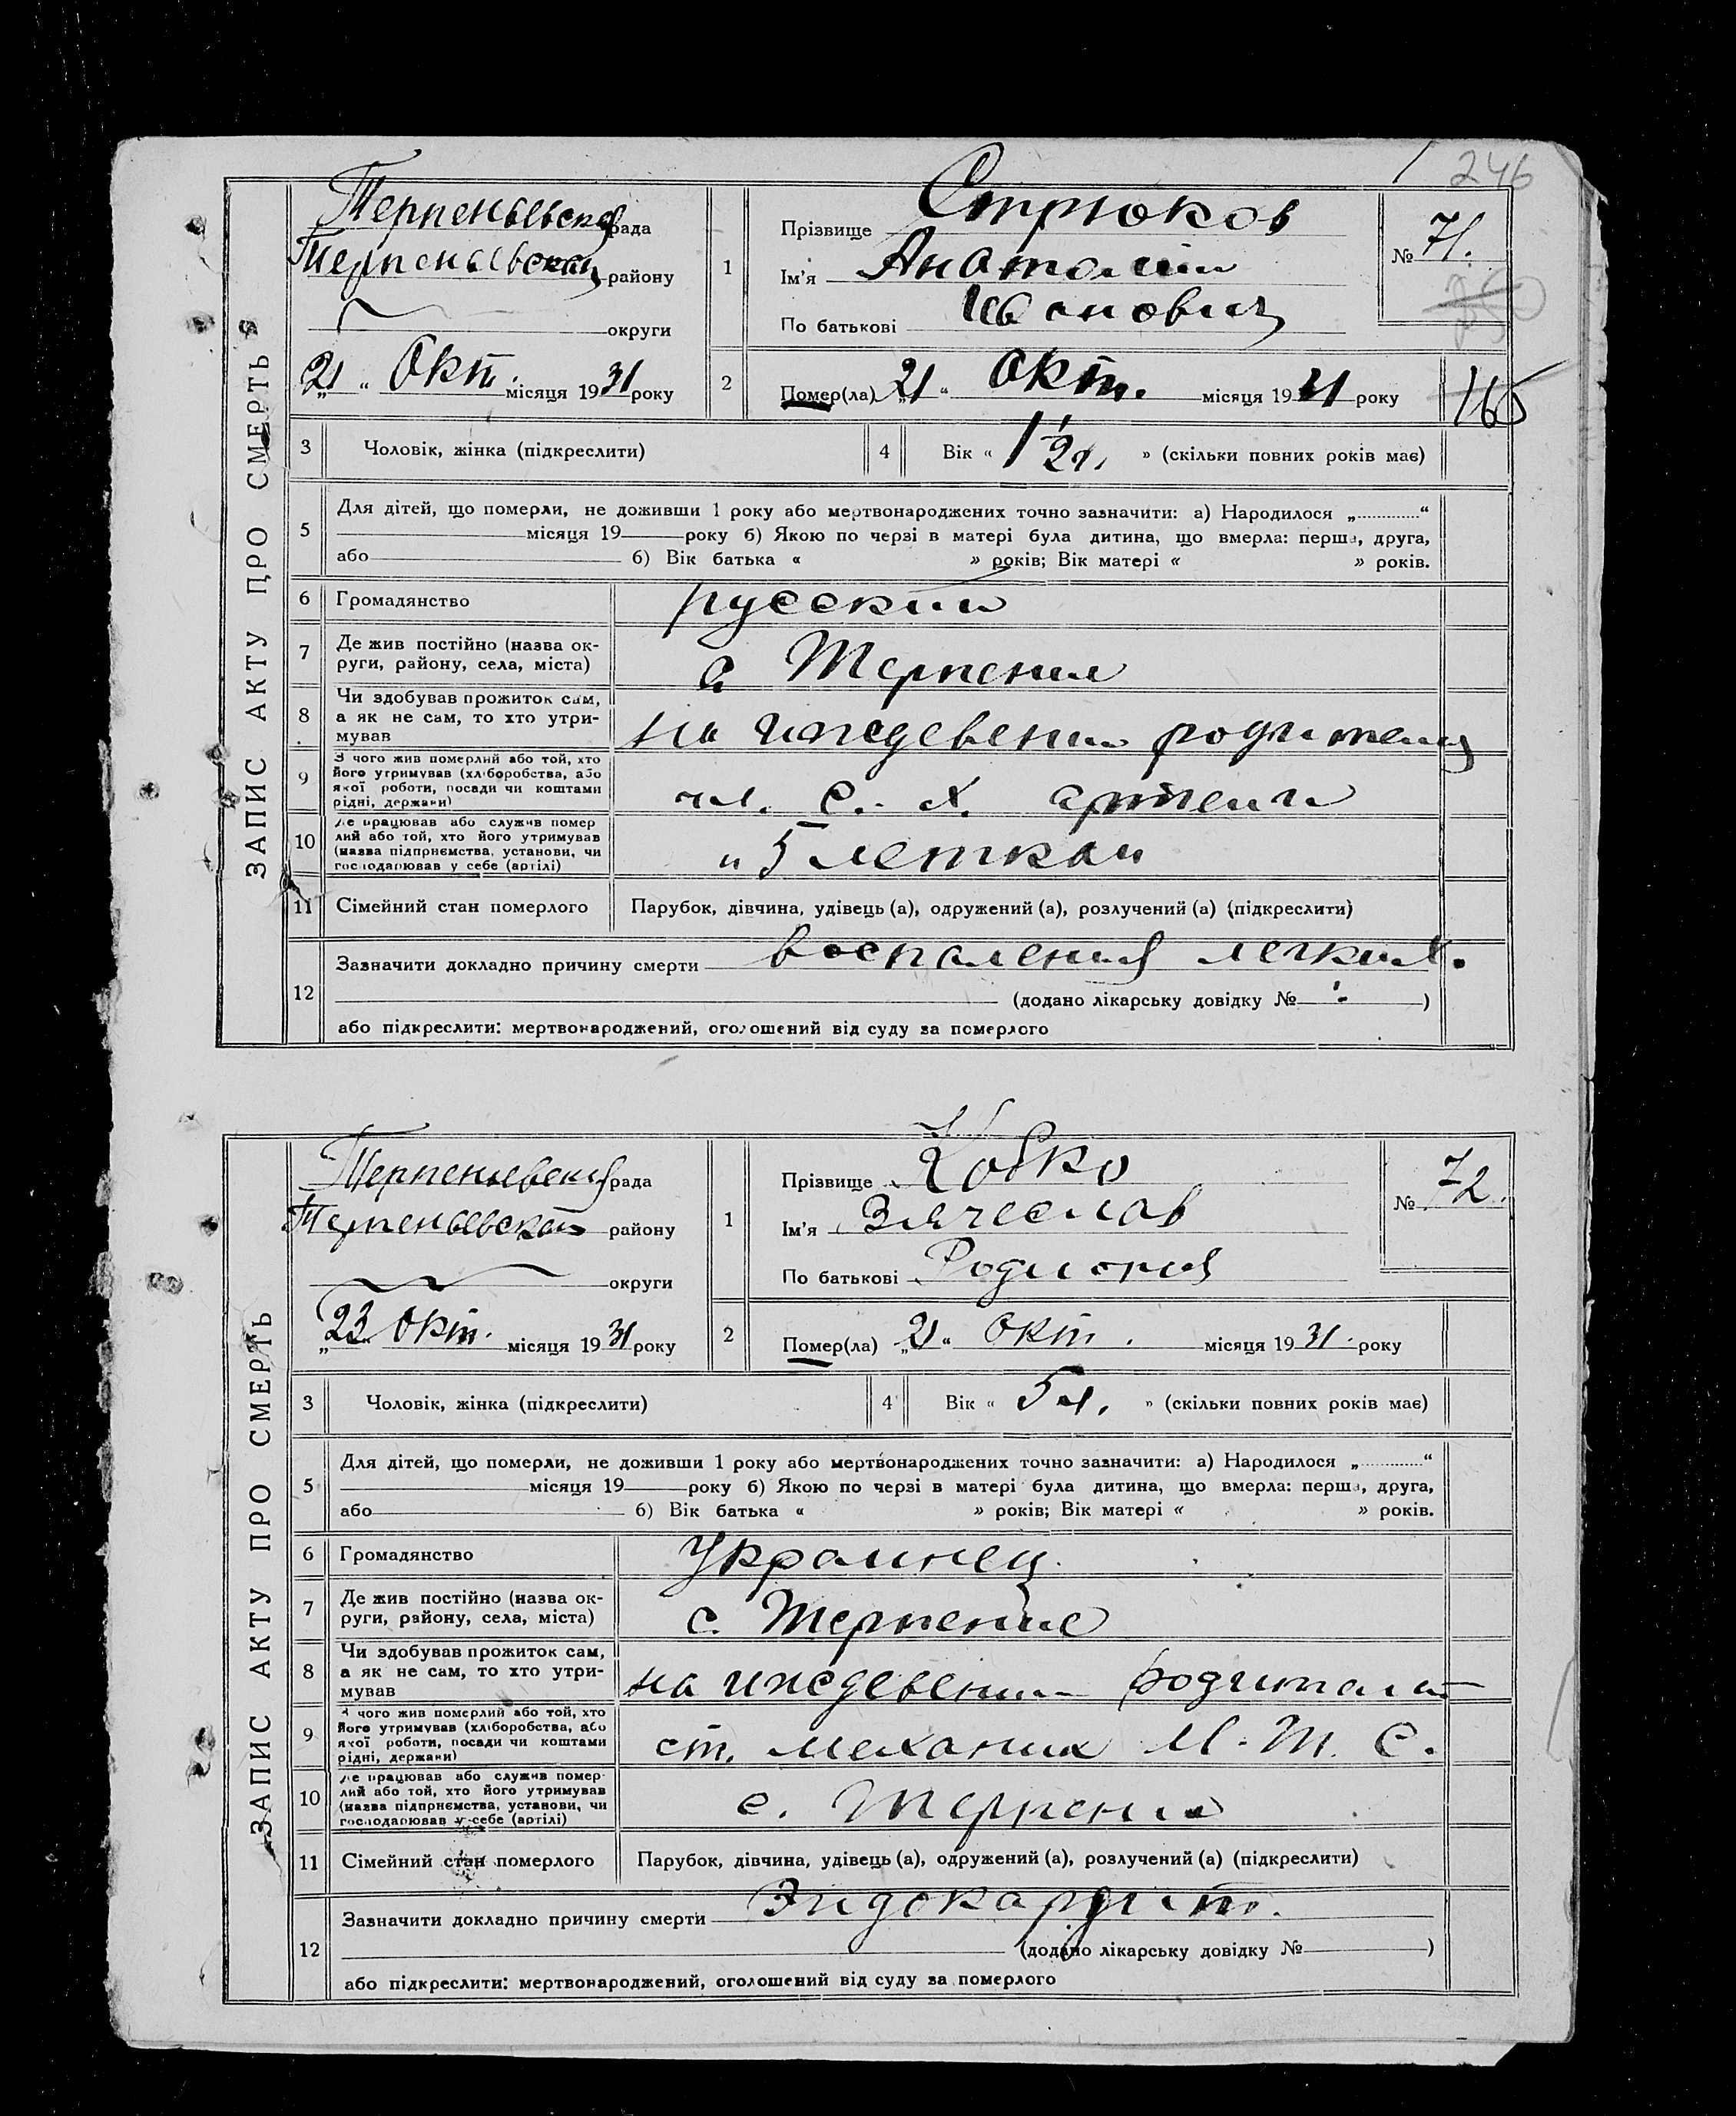 246
ЗАПИС АКТУ ПРО СМЕРТЬ
Терпеньевская рада
Терпеньевского району
округи
„21“ Окт. місяця 1931 року
1
Прізвище Стрюков
Ім'я Анатолий
По батькові Иванович
№ 71.
2
Помер(ла) „21“ Окт. місяця 1931 року
165
3 Чоловік, жінка (підкреслити)
4 Вік « 1 1/2 г. » (скільки повних років має)
5 Для дітей, що померли, не доживши 1 року або мертвонароджених точно зазначити: а) Народилося „............“
місяця 19 року б) Якою по черзі в матері була дитина, що вмерла: перша, друга,
або б) Вік батька « » років; Вік матері « » років.
6 Громадянство русский
7 Де жив постійно (назва ок-
руги, району, села, міста) с Терпение
8 Чи здобував прожиток сам,
а як не сам, то хто утри-
мував на иждевении родителей
9 З чого жив померлий або той, хто
його утримував (хліборобства, або
якої роботи, посади чи коштами
рідні, держави) чл. с. х. артели
10 Де працював або служив помер
лий або той, хто його утримував
(назва підприємства, установи, чи
господарював у себе (артілі) „5 летка“
11 Сімейний стан померлого Парубок, дівчина, удівець (а), одружений (а), розлучений (а) (підкреслити)
12 Зазначити докладно причину смерти воспаления легких.
(додано лікарську довідку № )
або підкреслити: мертвонароджений, оголошений від суду за померлого
ЗАПИС АКТУ ПРО СМЕРТЬ
Терпеньевская рада
Терпеньевского району
округи
„23“ Окт. місяця 1931 року
1
Прізвище
Ім'я Вячеслав
По батькові
№ 72.
2
Помер(ла) „21“ Окт. місяця 1931 року
3 Чоловік, жінка (підкреслити)
4 Вік « 5 л. » (скільки повних років має)
5 Для дітей, що померли, не доживши 1 року або мертвонароджених точно зазначити: а) Народилося „............“
місяця 19 року б) Якою по черзі в матері була дитина, що вмерла: перша, друга,
або б) Вік батька « » років; Вік матері « » років.
6 Громадянство Украинец
7 Де жив постійно (назва ок-
руги, району, села, міста) с. Терпение
8 Чи здобував прожиток сам,
а як не сам, то хто утри-
мував на иждевении
9 З чого жив померлий або той, хто
його утримував (хліборобства, або
якої роботи, посади чи коштами
рідні, держави) ст. механик М. Т. С.
10 Де працював або служив помер-
лий або той, хто його утримував
(назва підприємства, установи, чи
господарював у себе (артілі) с. Терпение
11 Сімейний стан померлого Парубок, дівчина, удівець (а), одружений (а), розлучений (а) (підкреслити)
12 Зазначити докладно причину смерти Эндокардит.
(додано лікарську довідку № )
або підкреслити: мертвонароджений, оголошений від суду за померлого